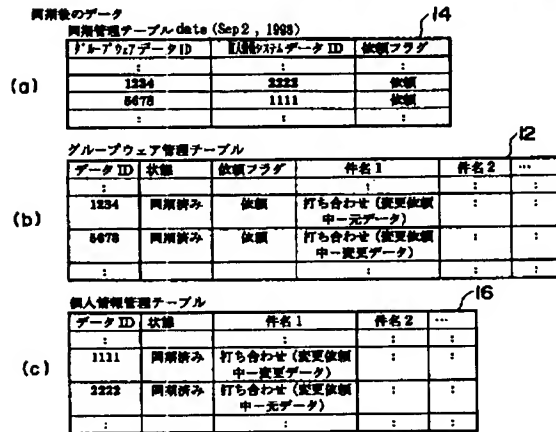 同期後のデータ
同期管理テーブル date (Sep2, 1998)
14
(a)
グループウェアデータID 個人情報システムデータID 依頼フラグ
: : :
1234 2222 依頼
5678 1111 依頼
: : :
グループウェア管理テーブル
12
(b)
データID 状態 依頼フラグ 件名1 件名2 …
: : : :
1234 同期済み 依頼 打ち合わせ(変更依頼 : :
中ー元データ)
5678 同期済み 依頼 打ち合わせ(変更依頼 : :
中ー変更データ)
: : : :
個人情報管理テーブル
16
(c)
データID 状態 件名1 件名2 …
: : : : :
1111 同期済み 打ち合わせ(変更依頼 : :
中ー変更データ)
2222 同期済み 打ち合わせ(変更依頼 : :
中ー元データ)
: : : :